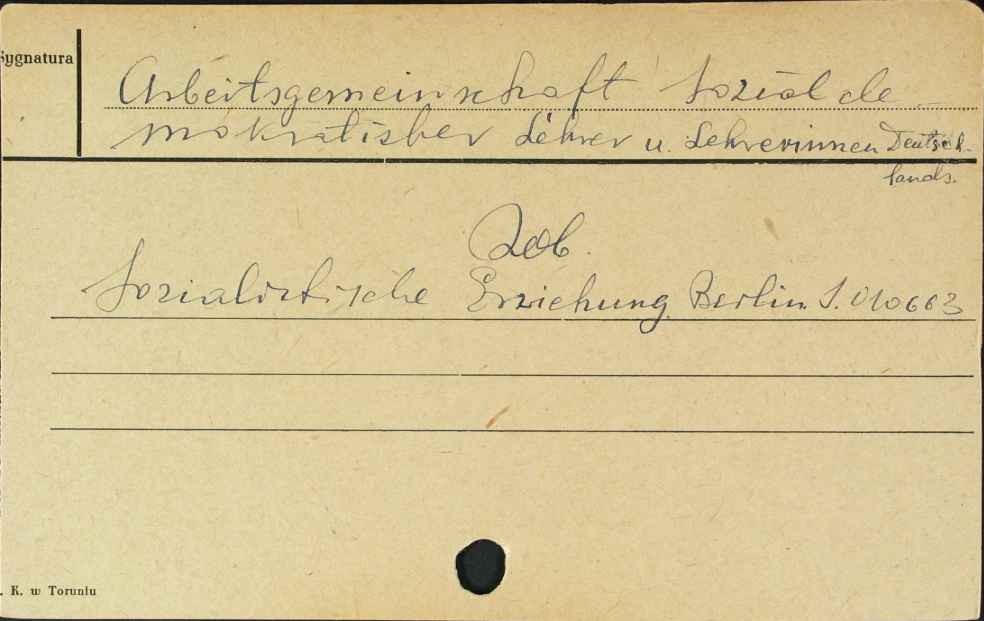 Sygnatura
Arbeitsgemeinschaft Sozialde-
mokratisher Lehrer u. Lehrerinnen Deutsch-
lands.
Zob.
Sozialistische Erziehung. Berlin. S. 010663
. K. w Toruniu